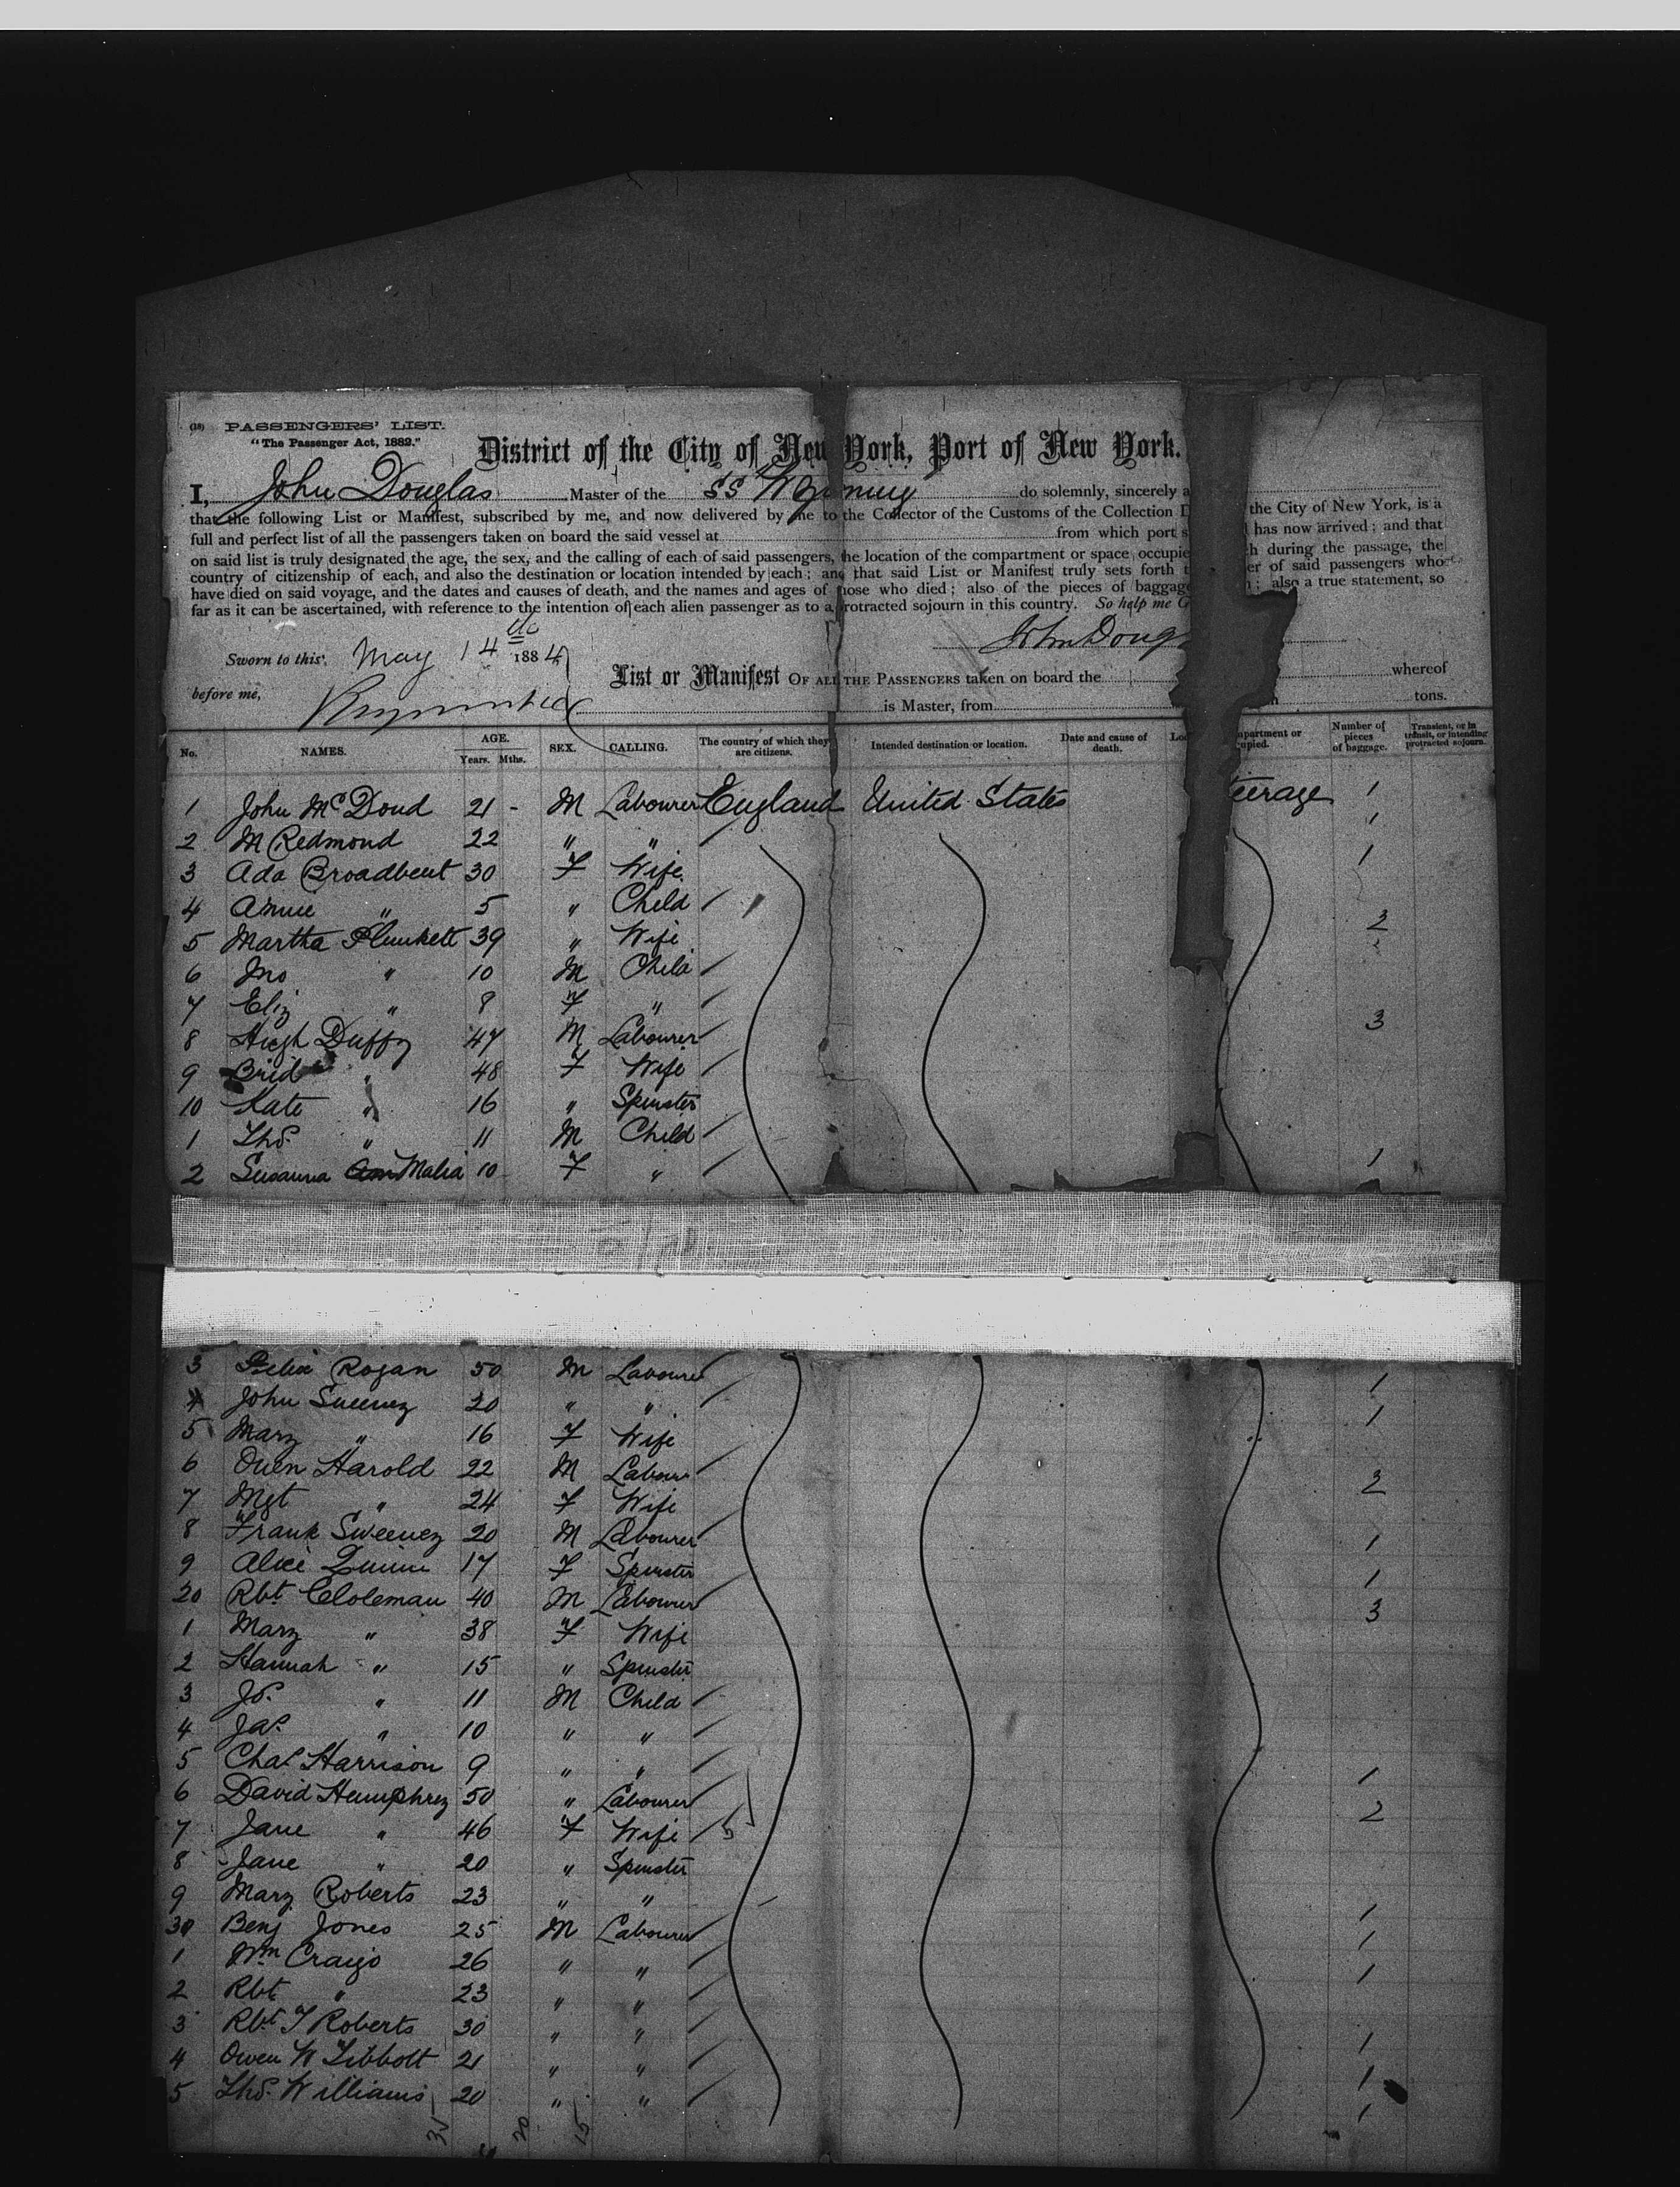 (18) PASSENGERS' LIST.
"The Passenger Act, 1882."
District of the City of New York, Port of New York.
I, John Douglas Master of the SS Wyoming do solemnly, sincerely a
that the following List or Manifest, subscribed by me, and now delivered by me to the Collector of the Customs of the Collection D the City of New York, is a
full and perfect list of all the passengers taken on board the said vessel at from which port s has now arrived; and that
on said list is truly designated the age, the sex, and the calling of each of said passengers, the location of the compartment or space occupie h during the passage, the
country of citizenship of each, and also the destination or location intended by each; and that said List or Manifest truly sets forth t er of said passengers who
have died on said voyage, and the dates and causes of death, and the names and ages of those who died; also of the pieces of baggage ; also a true statement, so
far as it can be ascertained, with reference to the intention of each alien passenger as to a protracted sojourn in this country. So help me G
John Doug
Sworn to this May 14th 1884
List or Manifest OF ALL THE PASSENGERS taken on board the whereof
before me, is Master, from tons.
No. NAMES. AGE. Years. Mths. SEX. CALLING. The country of which they are citizens. Intended destination or location. Date and cause of death. Lo partment or upied. Number of pieces of baggage. Transient, or in transit, or intending protracted sojourn.
1 John McDoud 21 - M Labourer England United States teerage 1
2 M Redmond 22 " " 1
3 Ada Broadbent 30 F Wife 1
4 Annie " 5 " Child
5 Martha Plunkett 39 " Wife 2
6 Jno " 10 M Child
7 Eliz " 8 F "
8 Hugh Duffy 47 M Labourer 3
9 Brid " 48 F Wife
10 Kate " 16 " Spinster
1 Thos " 11 M Child
2 Susanna Malia 10 F " 1
3 Felix Rogan 50 M Labourer 1
4 John Sweeney 20 " " 1
5 Mary " 16 F Wife
6 Owen Harold 22 M Labour 2
7 Mgt " 24 F Wife
8 Frank Sweeney 20 M Labourer 1
9 Alice Quinn 17 F Spinster 1
20 Rbt Coleman 40 M Labourer 3
1 Mary " 38 F Wife
2 Hannah " 15 " Spinster
3 Jos " 11 M Child
4 Jas " 10 " "
5 Chas Harrison 9 " " 1
6 David Humphrey 50 " Labourer 2
7 Jane " 46 F Wife
8 Jane " 20 " Spinster
9 Mary Roberts 23 " " 1
30 Benj Jones 25 M Labourer 1
1 Wm Craigo 26 " " 1
2 Rbt " 23 " "
3 Rbt T Roberts 30 " " 1
4 Owen W Tibbott 21 " " 1
5 Thos Williams 20 " " 1
35 20 15